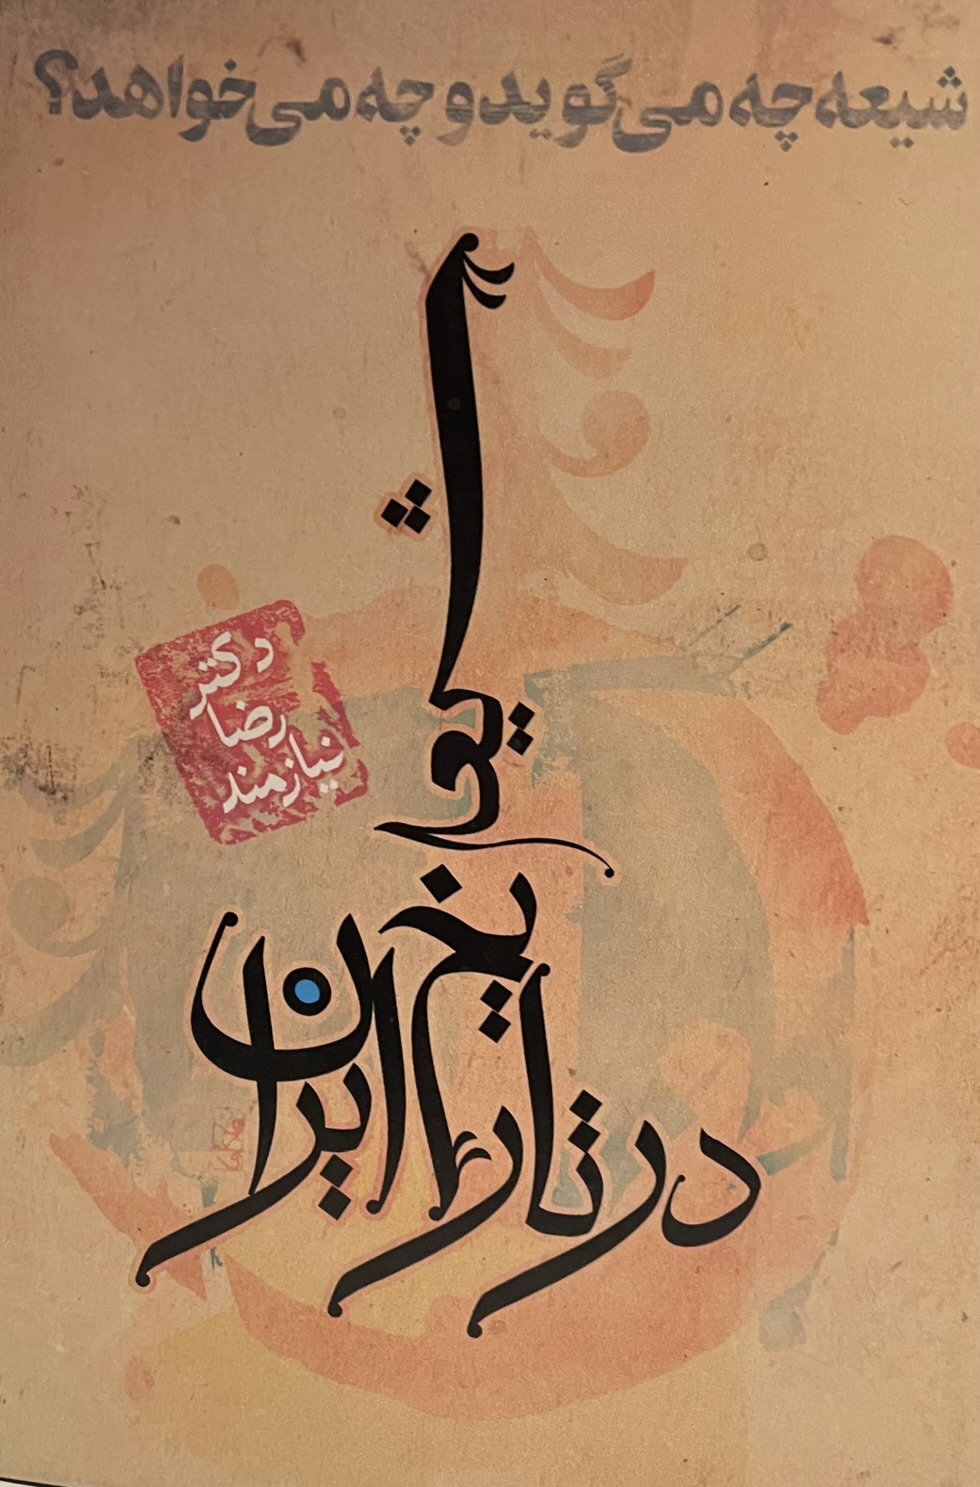 شیعه چه می‌گوید و چه می‌خواهد؟
شیعه
در تاریخ ایران
دکتر
رضا
نیازمند